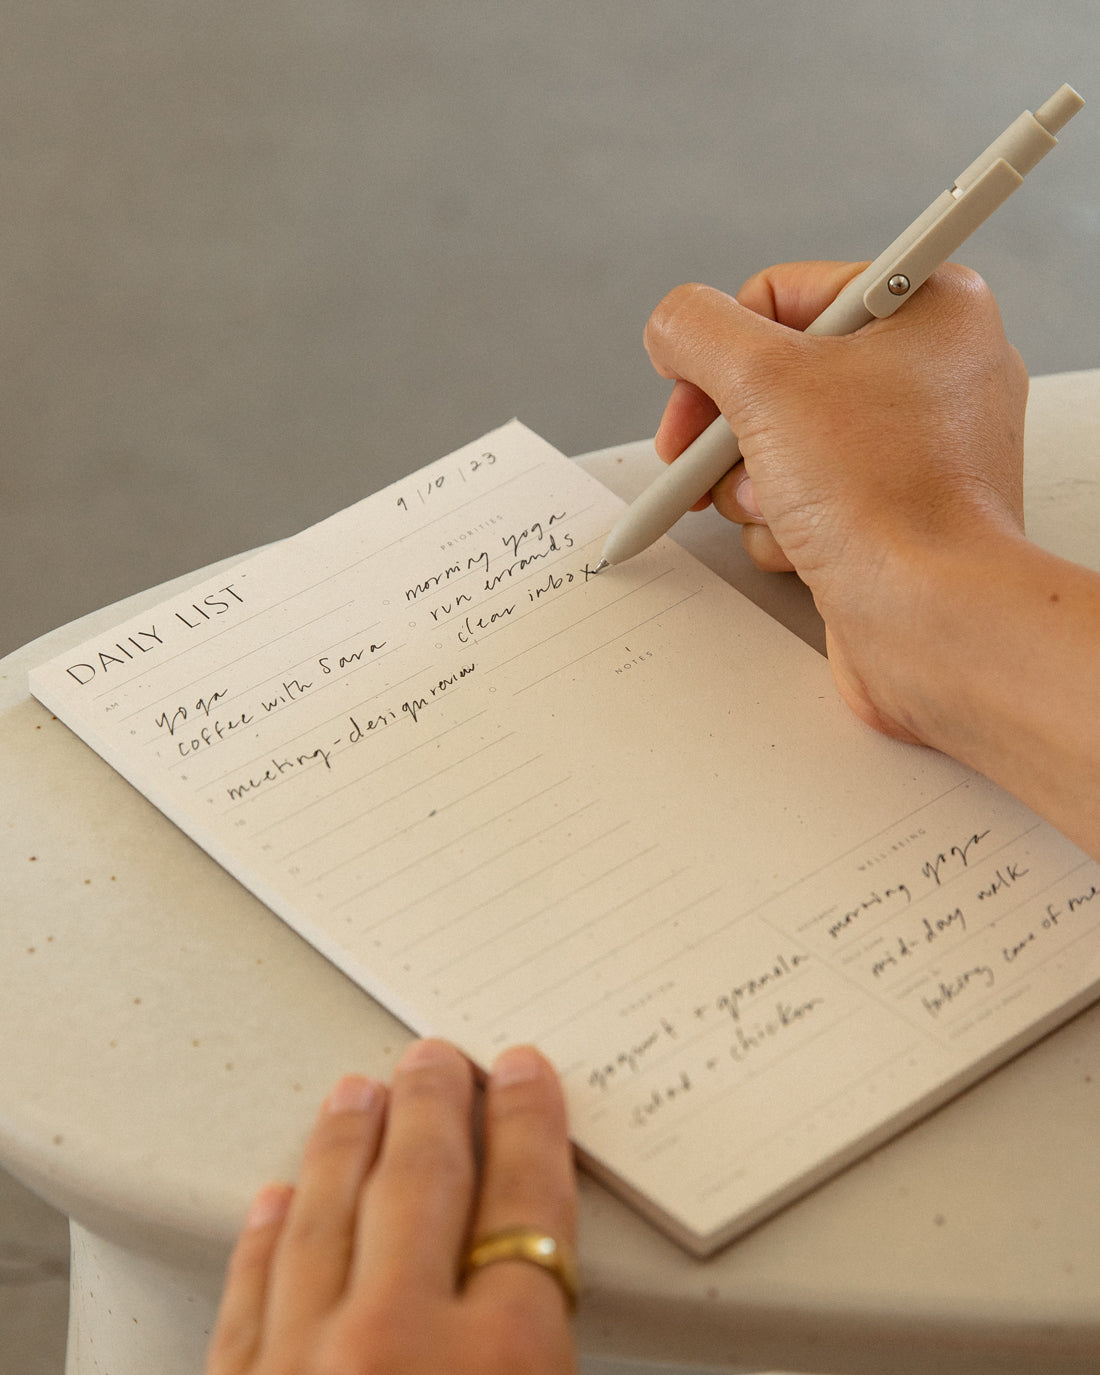 9/10/23
DAILY LIST
PRIORITIES
morning yoga
run errands
clear inbox
AM
6 yoga
7 coffee with Sara
8
9 meeting - design review
10
11
12
NOTES
WELL-BEING
morning yoga
mid-day walk
taking care of me
yogurt + granola
salad + chicken